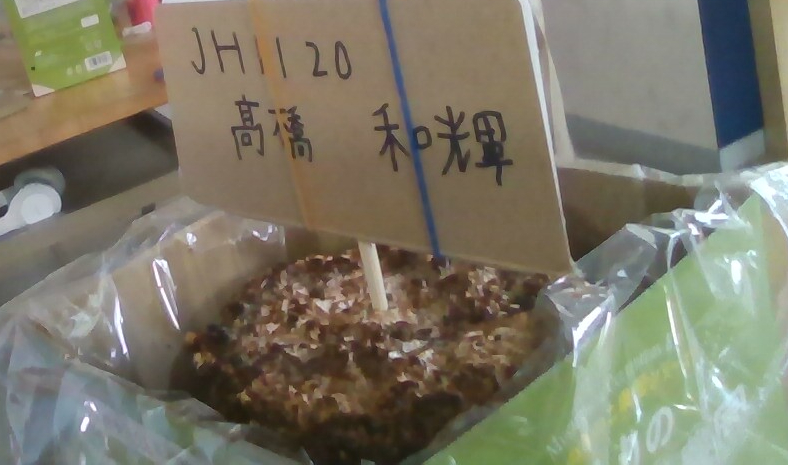 JH1120
髙橋 和輝
の